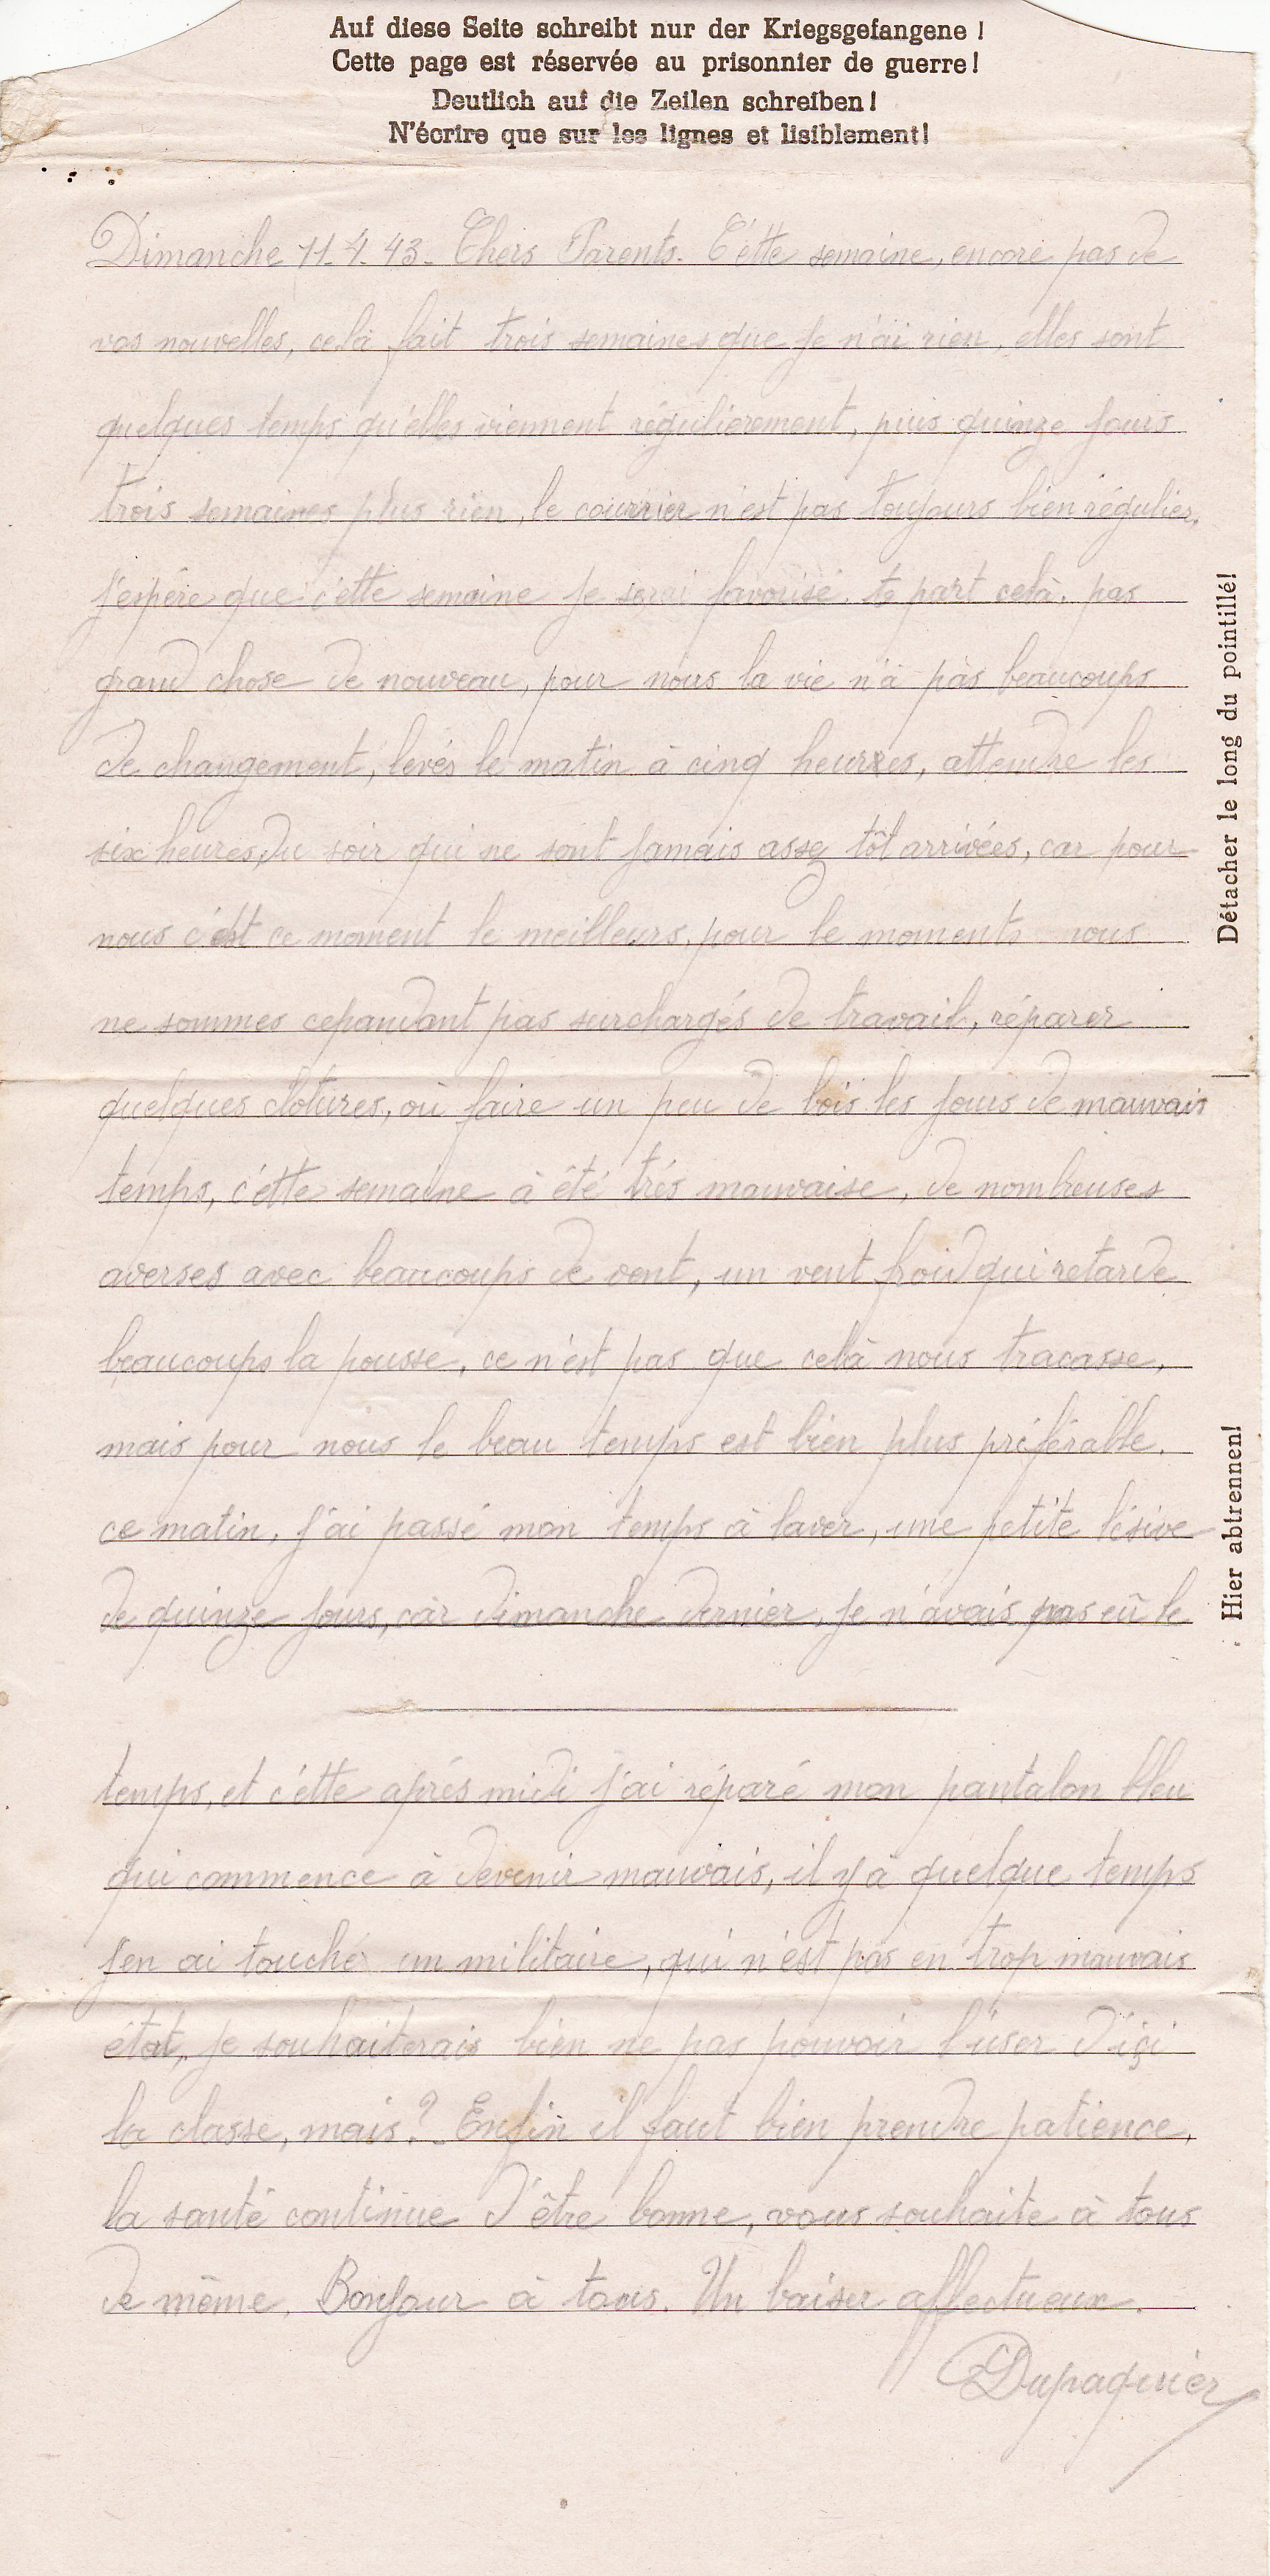 Auf diese Seite schreibt nur der Kriegsgefangene!
Cette page est réservée au prisonnier de guerre!
Deutlich auf die Zeilen schreiben!
N'écrire que sur les lignes et lisiblement!
Dimanche 11.4.43. Chers Parents. C'étte semaine, encore pas de
vos nouvelles, celà fait trois semaines que je n'ai rien, elles sont
quelques temps qu'elles viennent régulièrement, puis quinze jours
trois semaines plus rien, le courrier n'est pas toujours bien régulier,
j'espére que c'ette semaine je serai favorisé. à part celà, pas
grand chose de nouveau, pour nous la vie n'à pas beaucoups
de changement, levés le matin à cinq heures, attendre les
six heures du soir qui ne sont jamais assez tôt arrivées, car pour
nous c'est ce moment le meilleurs, pour le moments nous
ne sommes cepandant pas surchargés de travail, réparer
quelques clotures, où faire un peu de bois les jours de mauvais
temps, c'étte semaine à été trés mauvaise, de nombreuses
averses avec beaucoups de vent, un vent froid qui retarde
beaucoups la pousse, ce n'est pas que celà nous tracasse,
mais pour nous le beau temps est bien plus préférable.
ce matin, j'ai passé mon temps à laver, une petite lésive
de quinze jours, car dimanche dernier, je n'avais pas eû le
temps, et c'étte aprés midi j'ai réparé mon pantalon bleu
qui commence à devenir mauvais, il y à quelque temps
j'en ai touché un militaire, qui n'est pas en trop mauvais
état, je souhaiterais bien ne pas pouvoir l'user d'içi
la classe, mais? Enfin il faut bien prendre patience,
la santé continue d'être bonne, vous souhaite à tous
de même. Bonjour à tous. Un baiser affectueux.
Dupaquier
Détacher le long du pointillé!
Hier abtrennen!